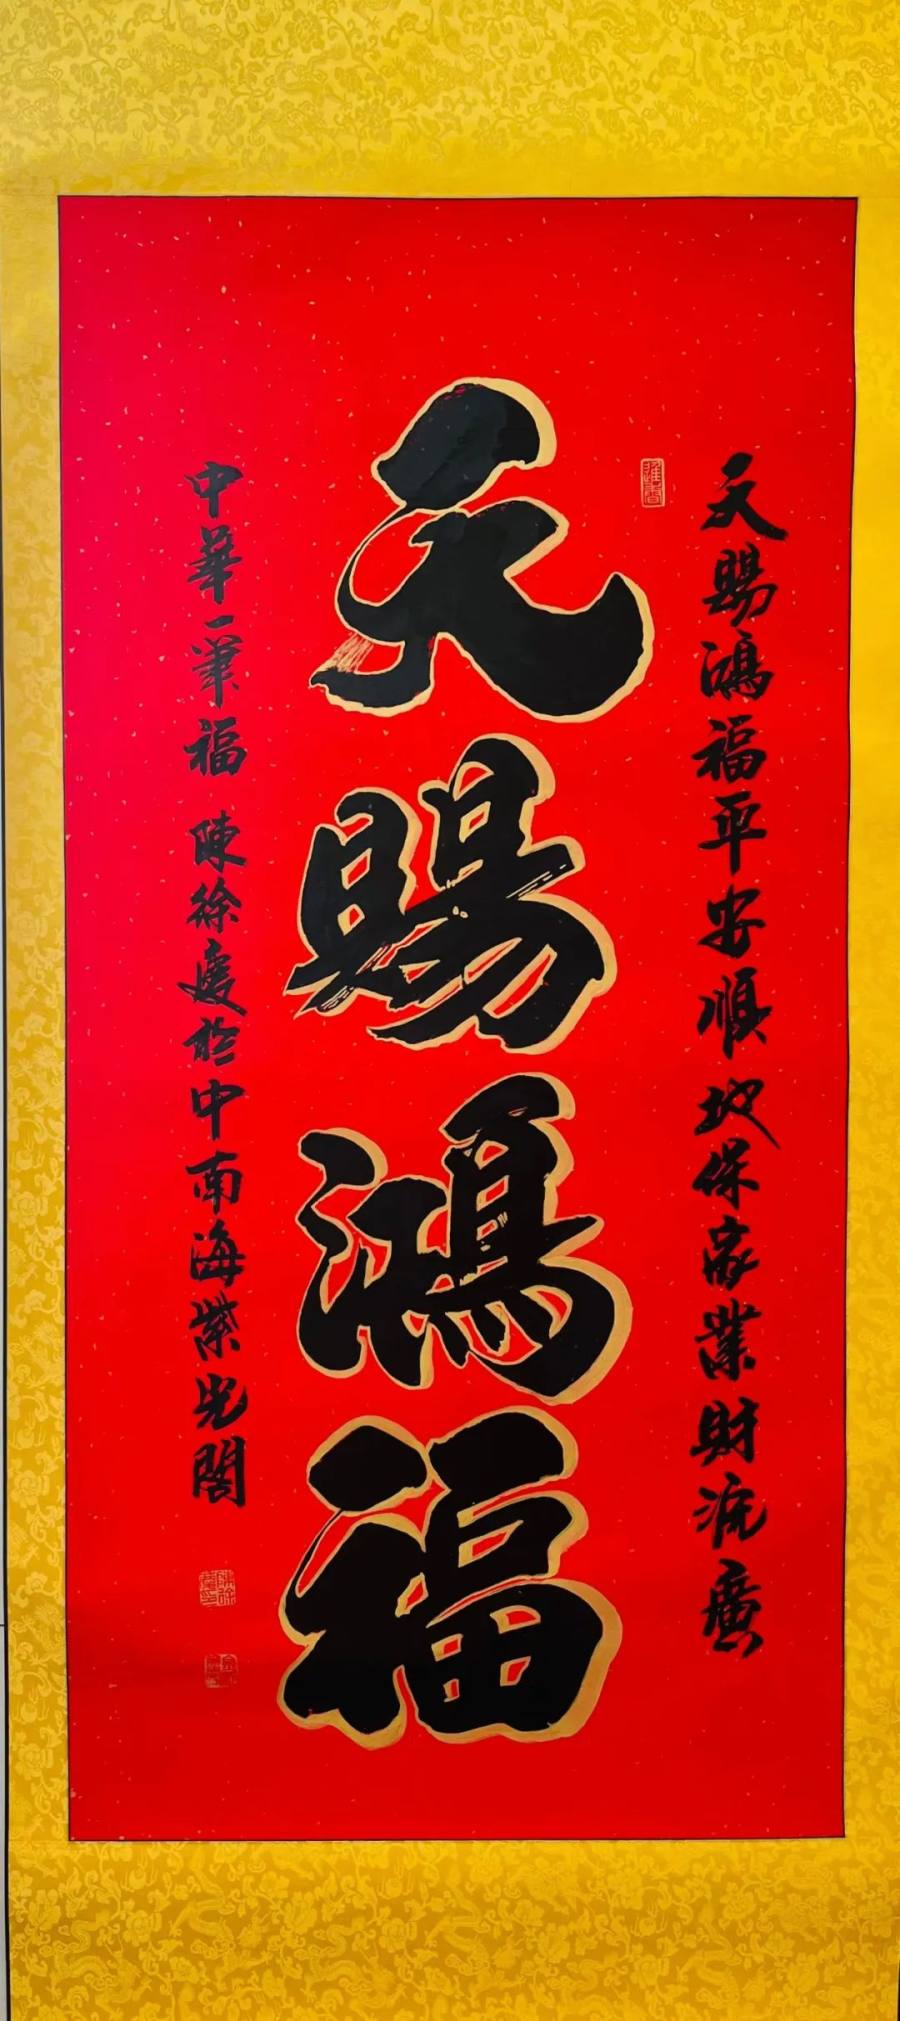 天賜鴻福平安順地保家業財源廣
天賜鴻福
中華一筆福 陳徐慶於中南海紫光閣